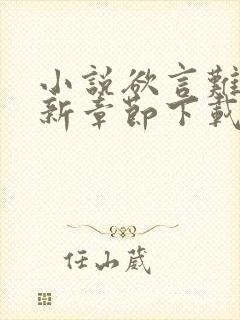 小説欲言難
新章節下載
任山葳